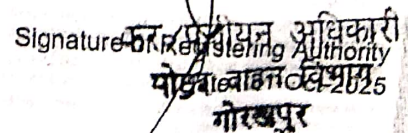 कर / पंजीयन अधिकारी
Signature of Registering Authority
मोटर वाहन विभाग
Oct-2025
गोरखपुर